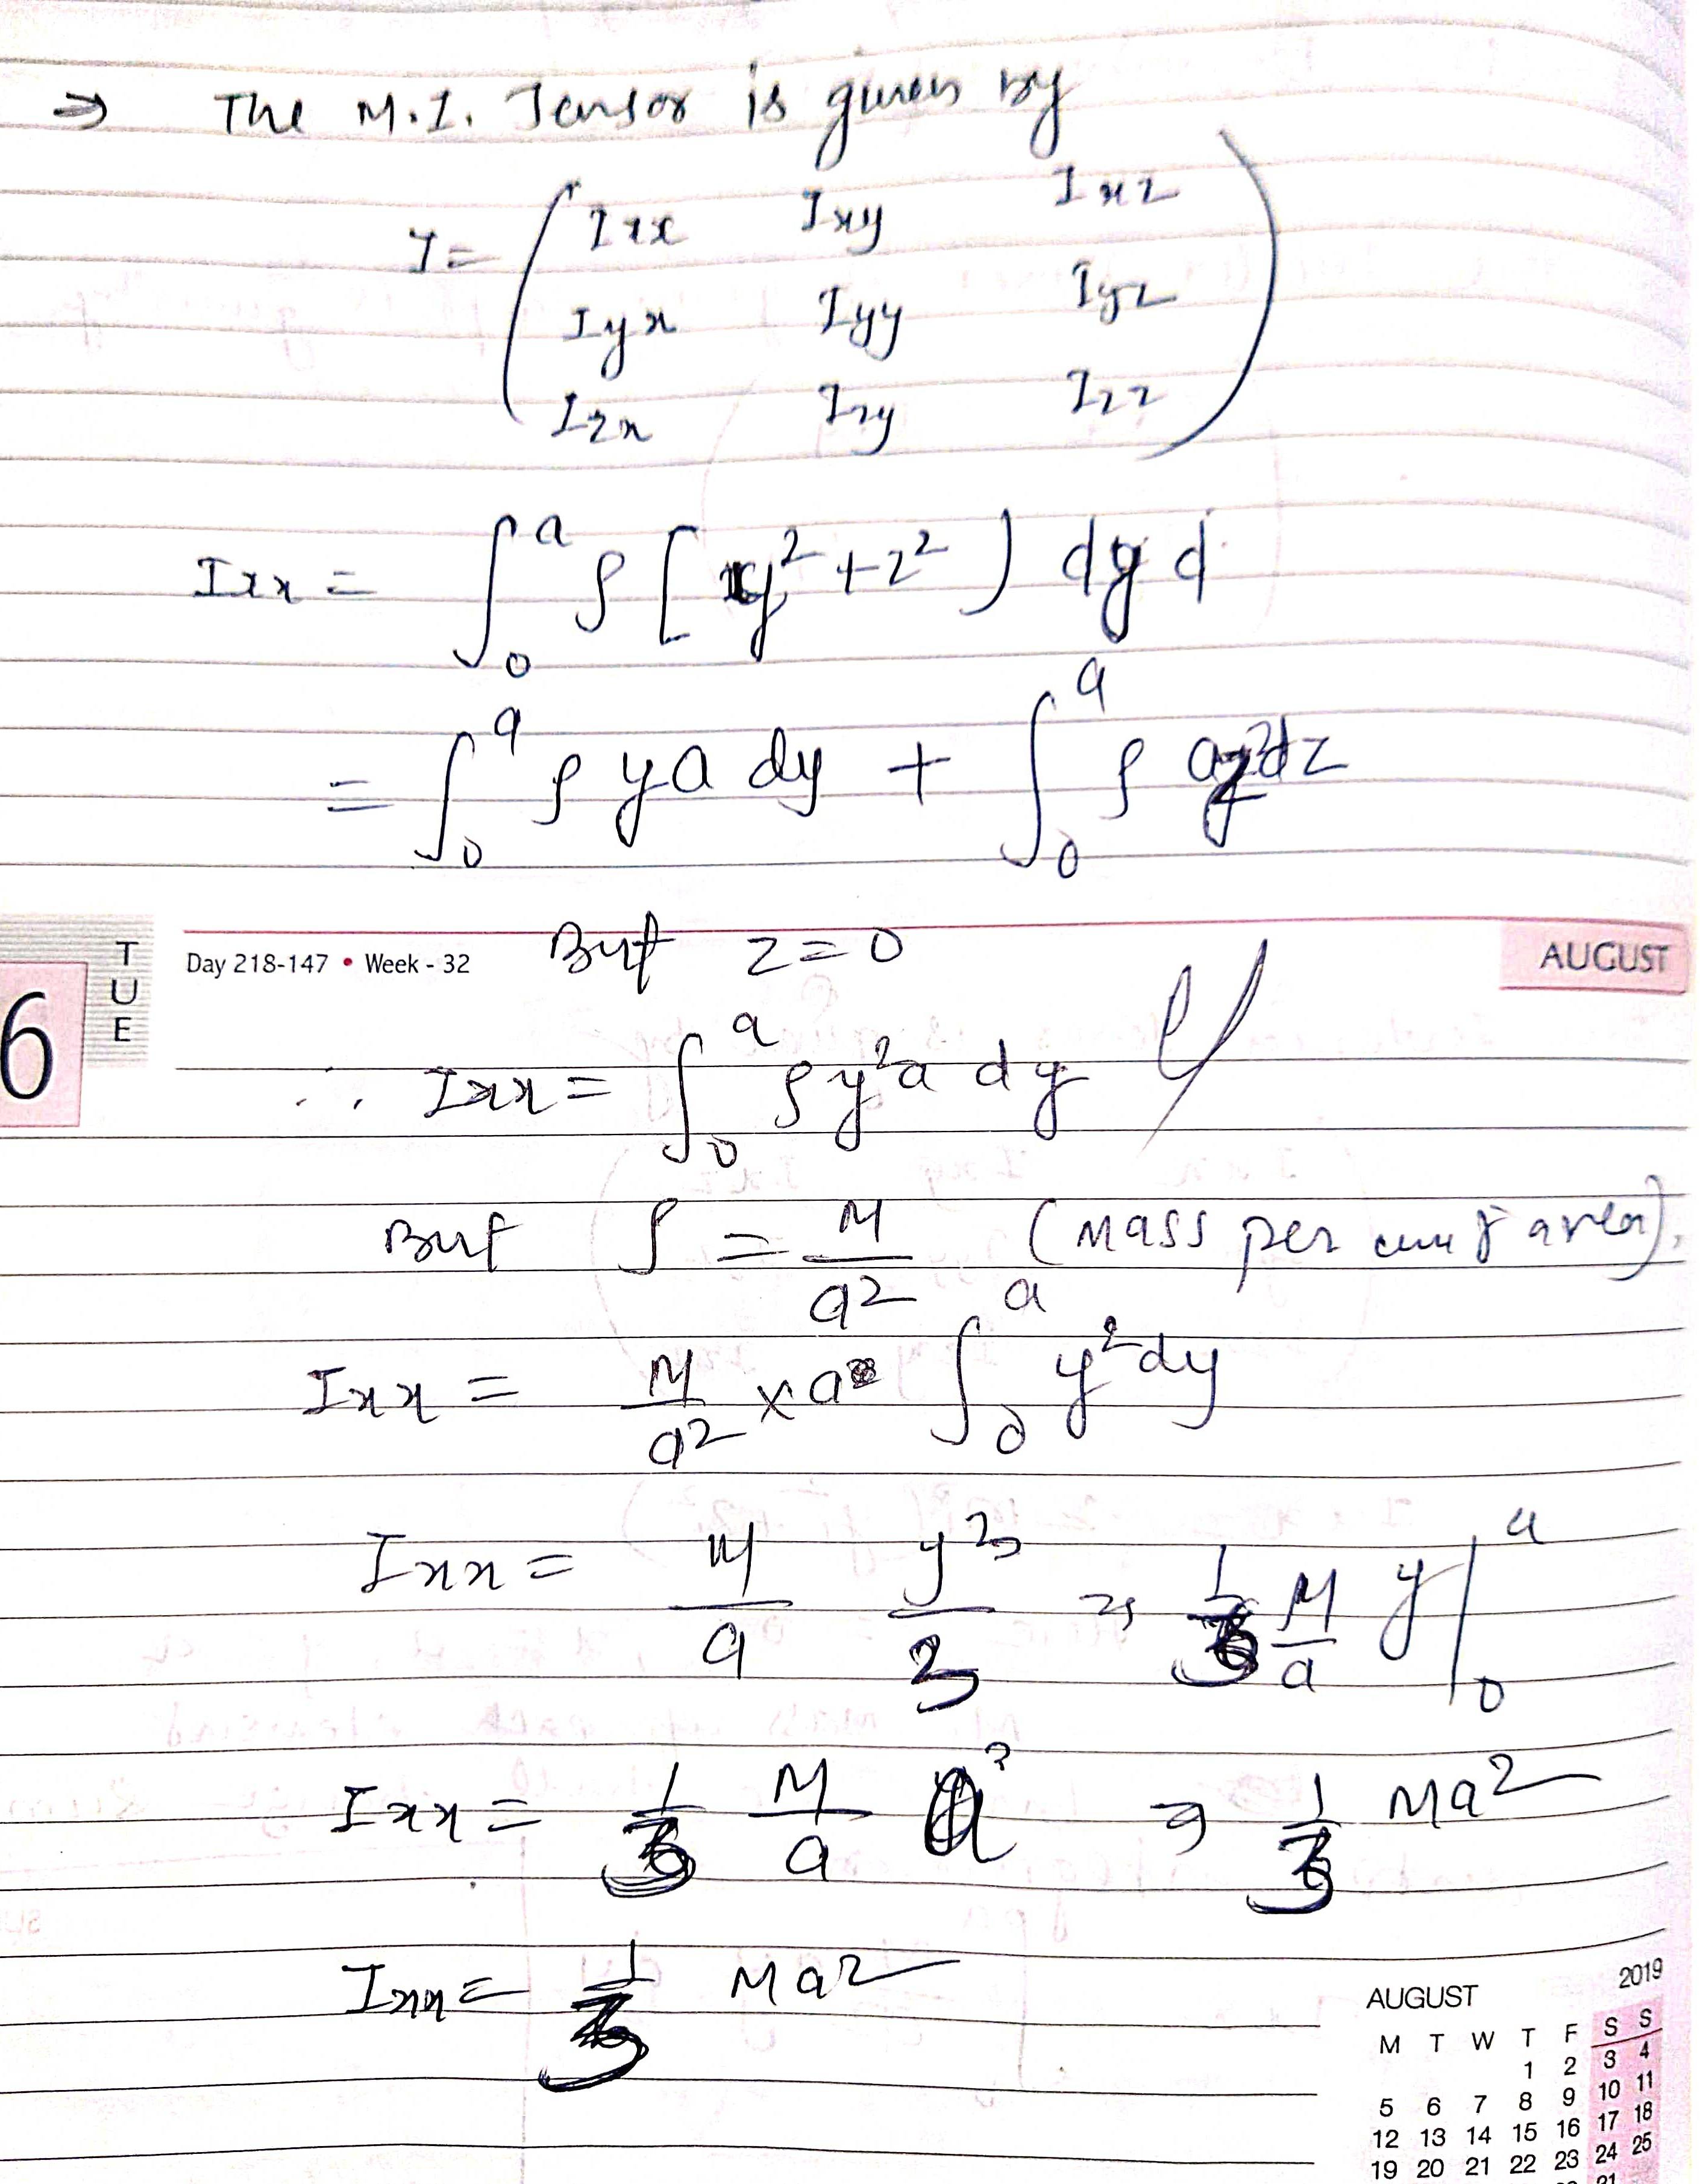 ⇒ The M.I. Tensor is given by
I = ( Ixx Ixy Ixz
Iyx Iyy Iyz
Izx Izy Izz )
Ixx = ∫₀ᵃ ρ [ y² + z² ) dy d
= ∫₀ᵃ ρ y a dy + ∫₀ᵃ ρ a z² dz
6 TUE Day 218-147 • Week - 32 But z = 0 AUGUST
∴ Ixx = ∫₀ᵃ ρ y² a dy
But ρ = M/a² (Mass per unit area).
Ixx = M/a² × a ∫₀ᵃ y² dy
Ixx = M/a y³/3 ⇒ 1/3 M/a y |₀ᵃ
Ixx = 1/3 M/a a³ ⇒ 1/3 Ma²
Ixx = 1/3 Ma²
AUGUST 2019
M T W T F S S
1 2 3 4
5 6 7 8 9 10 11
12 13 14 15 16 17 18
19 20 21 22 23 24 25